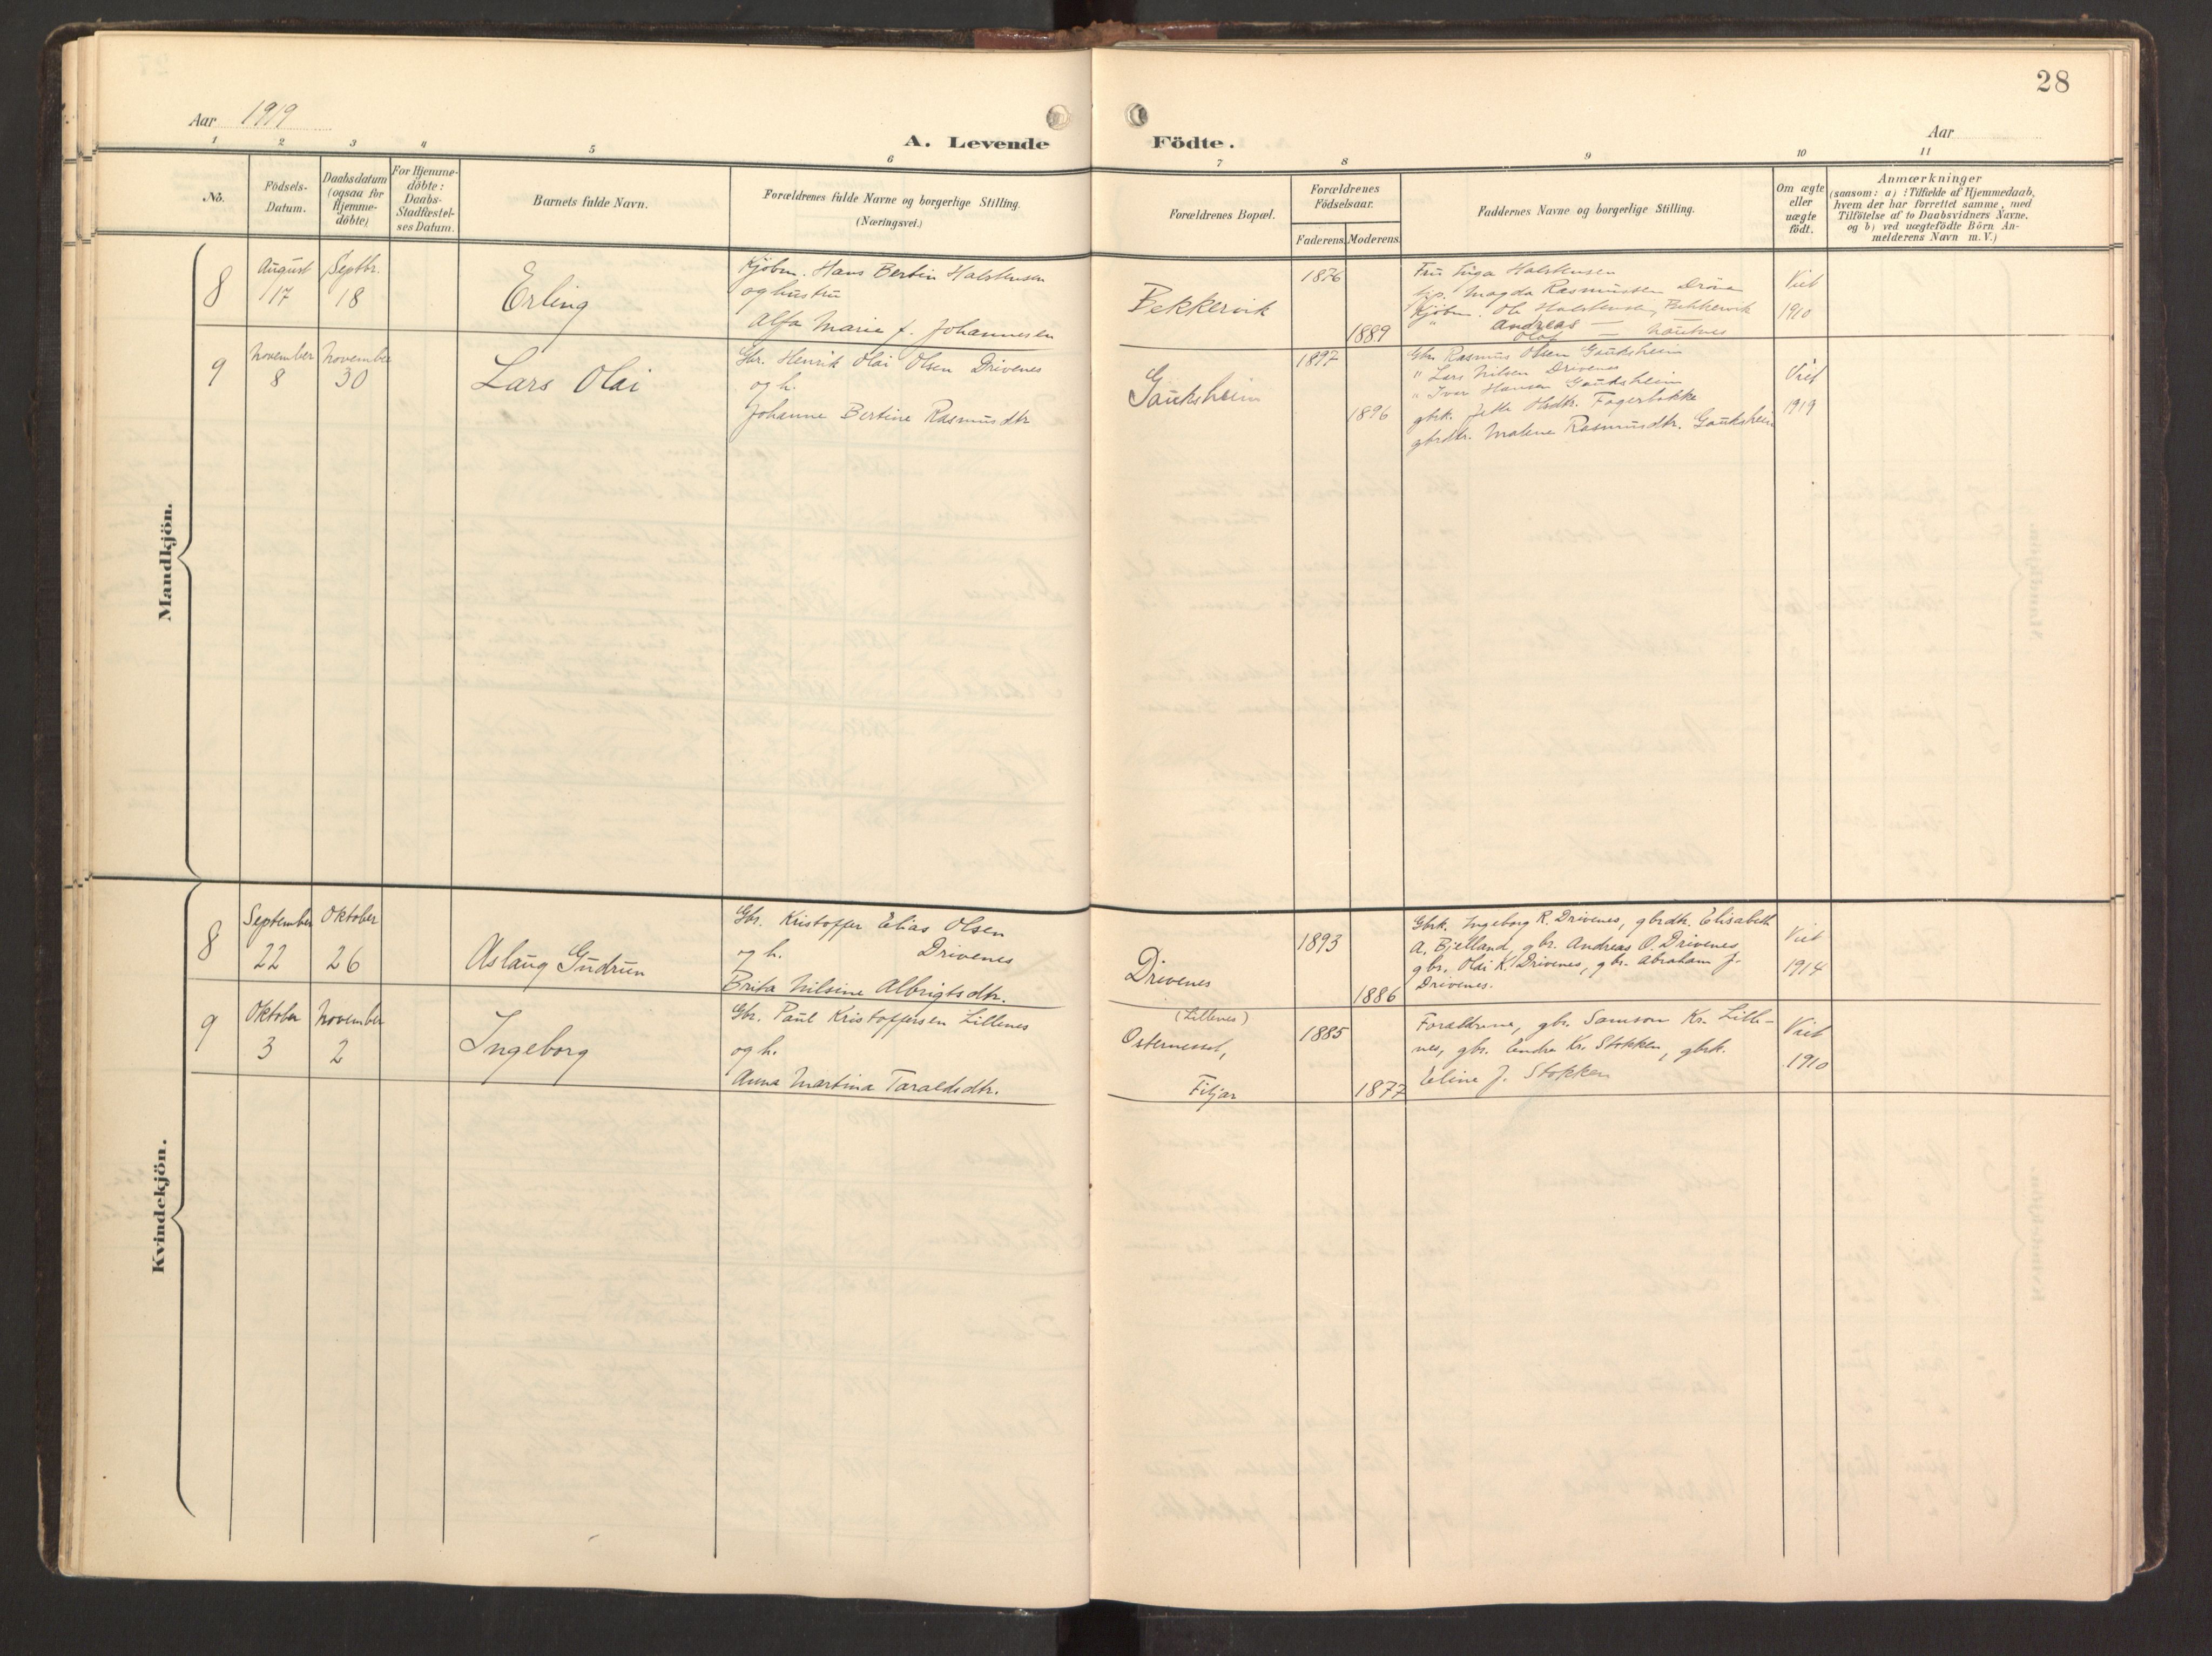 28
Aar 1919
A. Levende Födte.
Aar
1 2 3 4 5 6 7 8 9 10 11
No.
Födsels-
Datum.
Daabsdatum
(ogsaa for
Hjemme-
döbte)
For Hjemme-
döbte:
Daabs-
Stadfæstel-
ses Datum.
Barnets fulde Navn.
Forældrenes fulde Navne og borgerlige Stilling.
(Næringsvei.)
Forældrenes Bopæl.
Forældrenes
Födselsaar.
Faderens. Moderens.
Faddernes Navne og borgerlige Stilling.
Om ægte
eller
uægte
födt.
Anmærkninger
(saasom: a) i Tilfælde af Hjemmedaab,
hvem der har forrettet samme, med
Tilföielse af to Daabsvidners Navne.
og b) ved uægtefödte Börn An-
melderens Navn m. V.)
Mandkjön.
8
August
17
Septbr.
18
Erling
Kjöbm. Hans Bertin Halstensen
og hustru
Alfa Marie f. Johannesen
Bekkervik
1876
1889
Fru Inga Halstensen
Magda Rasmussen Drönen
Kjöbm. Ole Halstensen, Bekkervik
" Andreas —
Olaf —
Viet
1910
9
November
8
November
30
Lars Olai
Gbr. Henrik Olai Olsen Drivenes
og h.
Johanne Bertine Rasmusdtr
Gauksheim
1897
1896
Gbr. Rasmus Olsen Gauksheim
" Lars Nilsen Drivenes
" Iver Hansen Gauksheim
gbrk. Jette Olsdtr. Fagerbakke
gbrdtr. Malene Rasmusdtr. Gauksheim
Viet
1919
Kvindekjön.
8
September
22
Oktober
26
Aslaug Gudrun
Gbr. Kristoffer Elias Olsen
og h. Drivenes
Brita Nilsine Albrigtsdtr.
Drivenes
1893
1886
Gbrk. Ingeborg R. Drivenes, gbrdtr. Elisabeth
A. Bjelland, gbr. Andreas O. Drivenes,
gbr. Olai K. Drivenes, gbr. Abraham J.
Drivenes.
Viet
1914
9
Oktober
3
November
2
Ingeborg
Gbr. Paul Kristoffersen Lillenes
og h.
Anna Martina Taraldsdtr.
(Lillenes)
Osternesset,
Fitjar
1885
1877
Forældrene, gbr. Samson Kr. Lille-
nes, gbr. Endre Kr. Stokken, gbrk.
Eline J. Stokken
Viet
1910